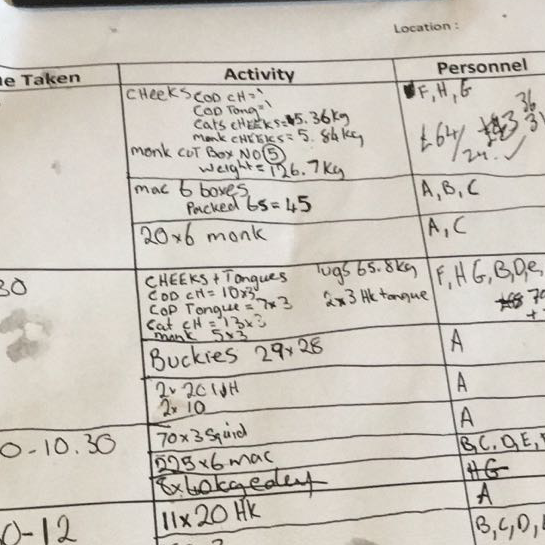 Location :
e Taken Activity Personnel
CHEEKS COD CH= F, H, G
COD Tong=
Cats CHEEKS= 5.36kg
monk CHEEKS= 5.84kg £64/
monk CUT Box NO 5
weight= 126.7kg
mac 6 boxes A, B, C
Packed 65=45
20x6 monk A, C
30 CHEEKS + Tongues Tugs 65.8kg F, H G, B, D, e,
COD CH= 10x3 2x3 Hk tongue
COD Tongue= 7x3
Cat CH= 13x3
monk 5x3
Buckies 29x28 A
2x 20 A
2x 10
70x3 Squid A
0-10.30 225x6 mac B, C, D, E,
HG
11x20 HK A
0-12 B, C, D,